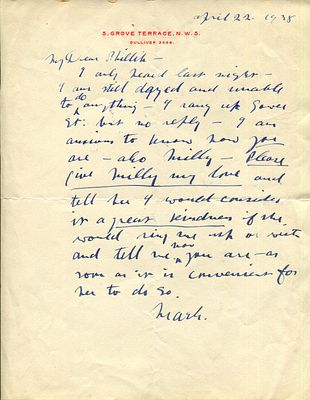 April 22. 1938
5, GROVE TERRACE, N.W.5.
GULLIVER 3666.
My Dear Phillip -
I only heard last night -
I am still dazed and unable
to do anything - I rang up Gower
St. but no reply - I am
anxious to know how you
are - also Milly - Please
give Milly my love and
tell her I would consider
it a great kindness if she
would ring me up or write
and tell me how you are - as
soon as it is convenient for
her to do so.
Mark.